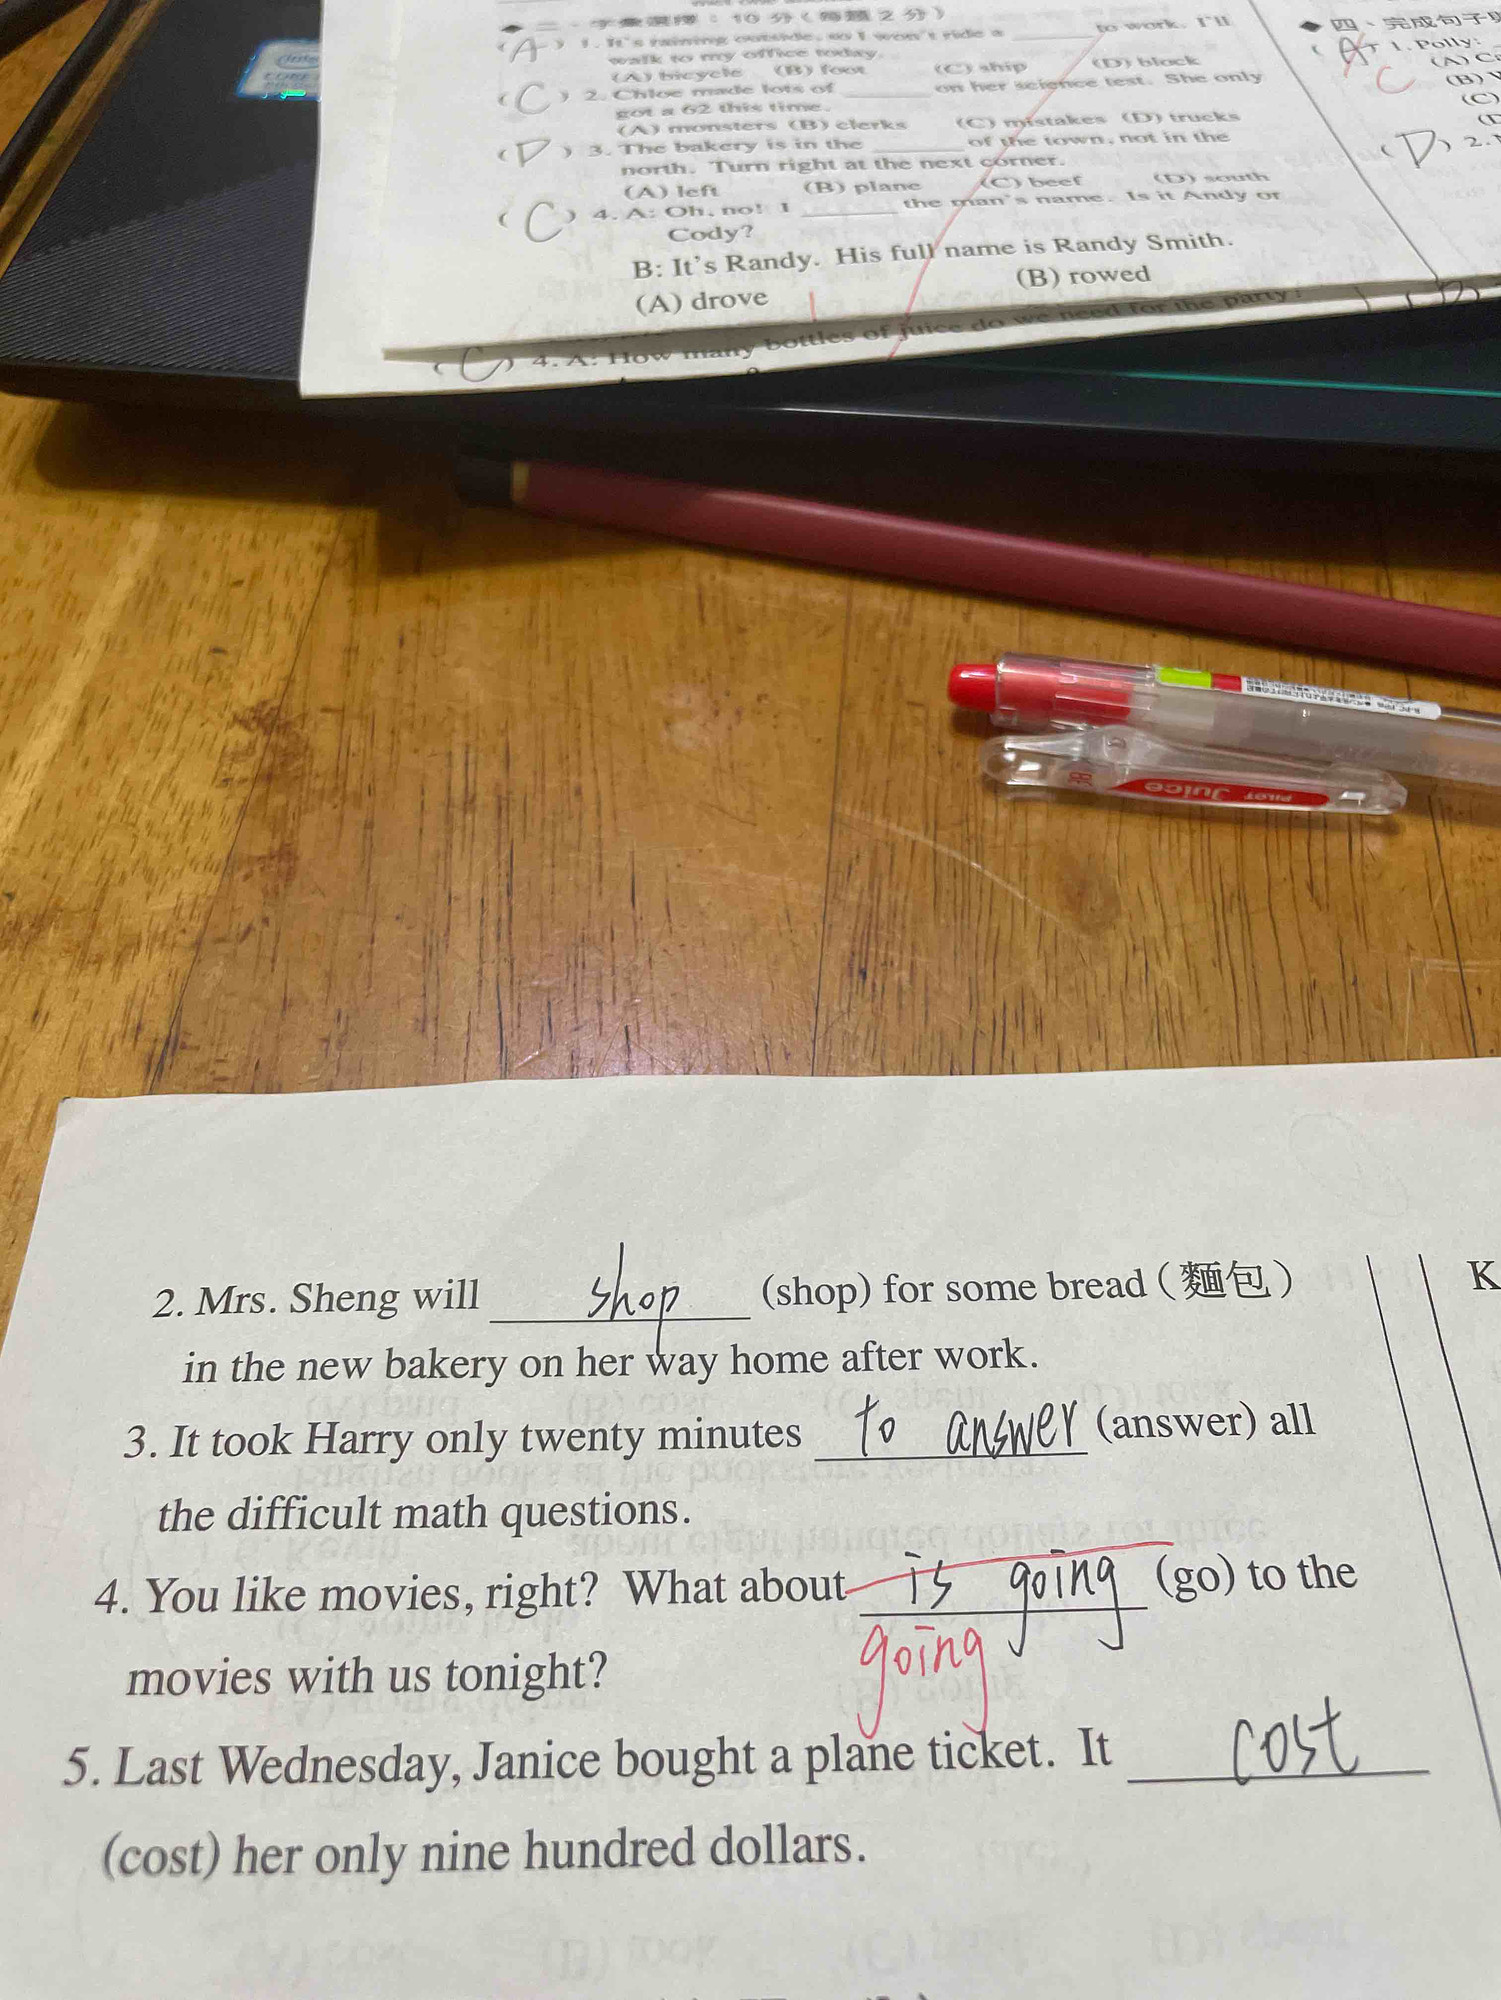 二、字彙選擇：10分（每題2分）
(A) 1. It's raining outside, so I won't ride a ______ to work. I'll
walk to my office today.
(A) bicycle (B) foot (C) ship (D) block
(C) 2. Chloe made lots of ______ on her science test. She only
got a 62 this time.
(A) monsters (B) clerks (C) mistakes (D) trucks
(D) 3. The bakery is in the ______ of the town, not in the
north. Turn right at the next corner.
(A) left (B) plane (C) beef (D) south
(C) 4. A: Oh, no! I ______ the man's name. Is it Andy or
Cody?
B: It's Randy. His full name is Randy Smith.
(A) drove (B) rowed
◆ 四、完成句子
(A) 1. Polly:
C
(A)
(B)
(C)
(D) 2.
(C) 4. A: How many bottles of juice do we need for the party?
PILOT Juice
2. Mrs. Sheng will shop (shop) for some bread (麵包)
in the new bakery on her way home after work.
3. It took Harry only twenty minutes to answer (answer) all
the difficult math questions.
4. You like movies, right? What about is going (go) to the
going
movies with us tonight?
5. Last Wednesday, Janice bought a plane ticket. It cost
(cost) her only nine hundred dollars.
K